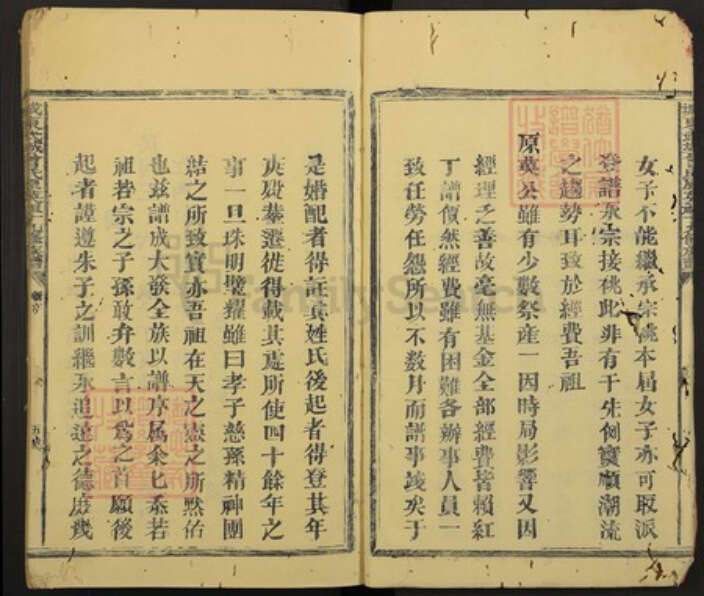 女子不能繼承宗祧本屆女子亦可取派
登譜承宗接祧此非有干先例實順潮流
之趨勢耳致於經費吾祖
原英公雖有少數祭產一因時局影響又因
經理乏善故毫無基金全部經費皆賴紅
丁譜價然經費雖有困難各辦事人員一
致任勞任怨所以不数月而譜事竣矣于
是婚配者得証其姓氏後起者得登其年
庚歿塟遷徙得載其處所使四十餘年之
事一旦珠明鑒耀雖曰孝子慈孫精神團
結之所致實亦吾祖在天之靈之所黙佑
也兹譜成大發全族以譜序属余匕忝若
祖若宗之子孫敢弁數言以為之首願後
起者謹遵朱子之訓繼承追遠之德庶幾
FamilySearch